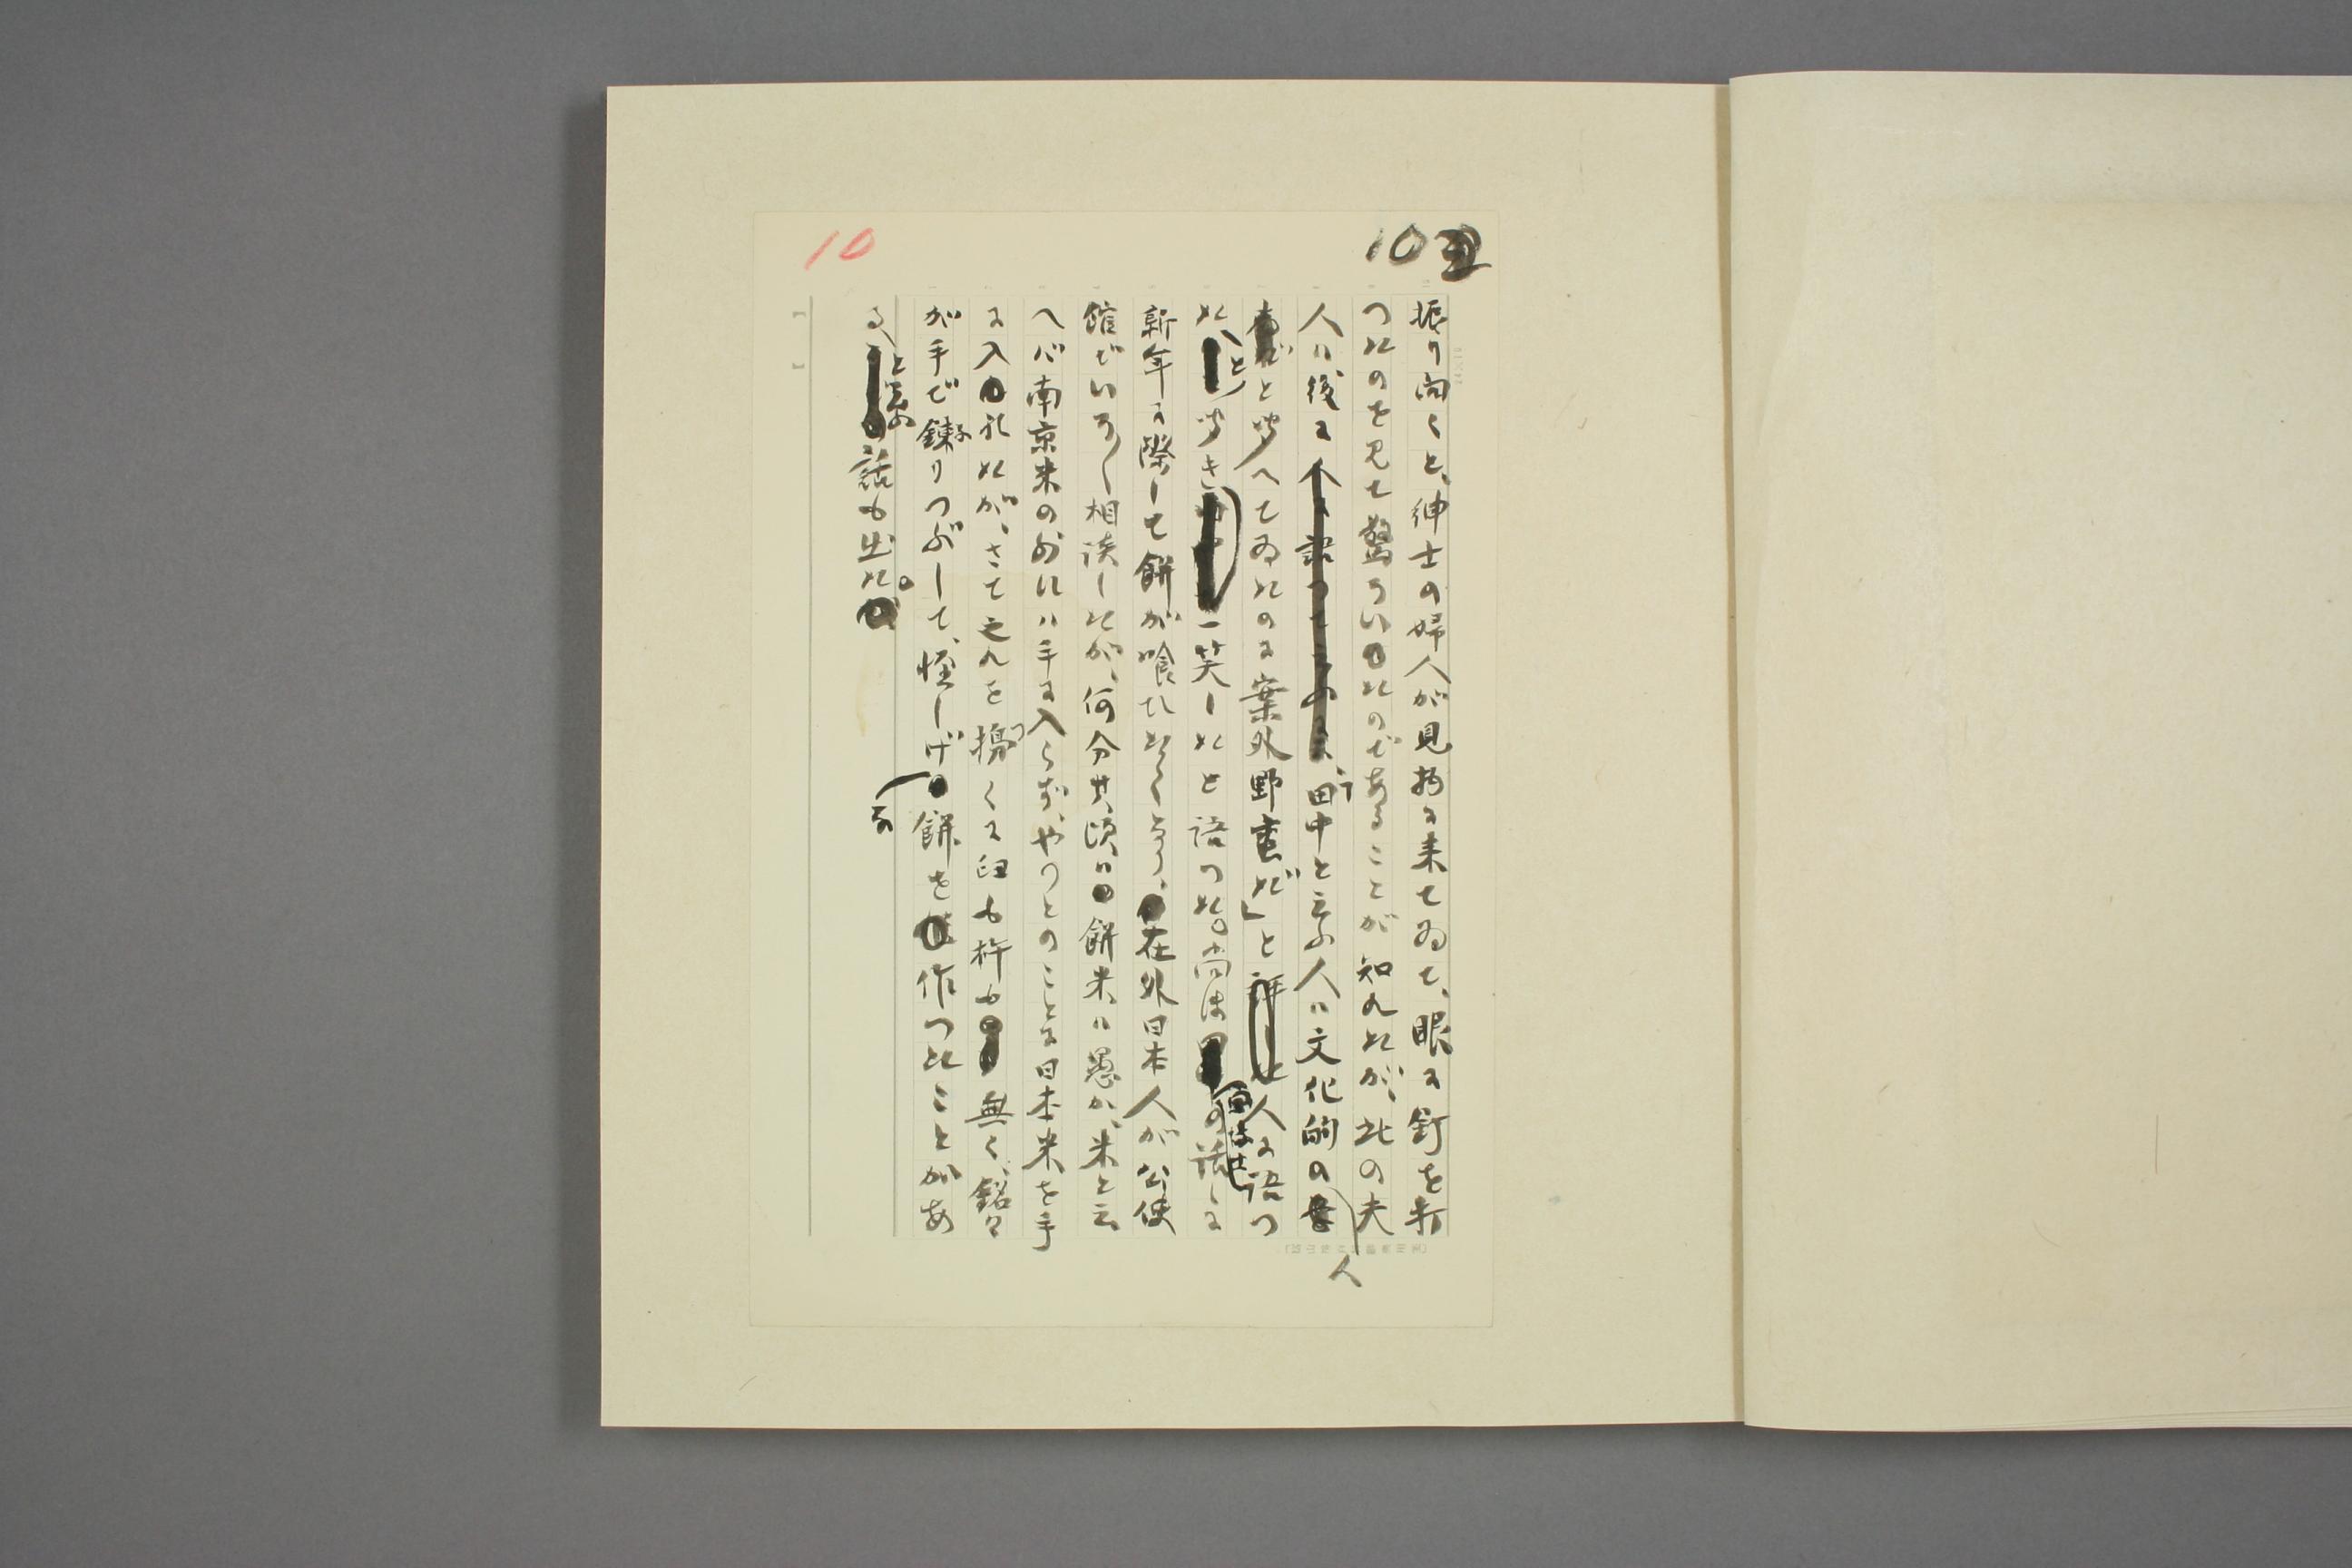 10
10
振り向くと、紳士の婦人が見物に来てゐて、眼に釘を打
つたのを見て驚ろいたのであることが知れたが、此の夫
人は後に、田中と云ふ人は文化的の人
だと考へてゐたのに案外野蛮だ」と人に語つ
たと聞き一笑したと語つた。尚ほの話しに
新年に際して餅が喰ひたくなり、在外日本人が公使
館でいろ〳〵相談したが、何分其頃は餅米は愚か、米と云
へば南京米の外には手に入らず、やつとのことに日本米を手
に入れたが、さて之れを搗くに臼も杵も無く、銘々
が手で錬りつぶして、怪しげな餅を作つたことがあ
ると話も出た。